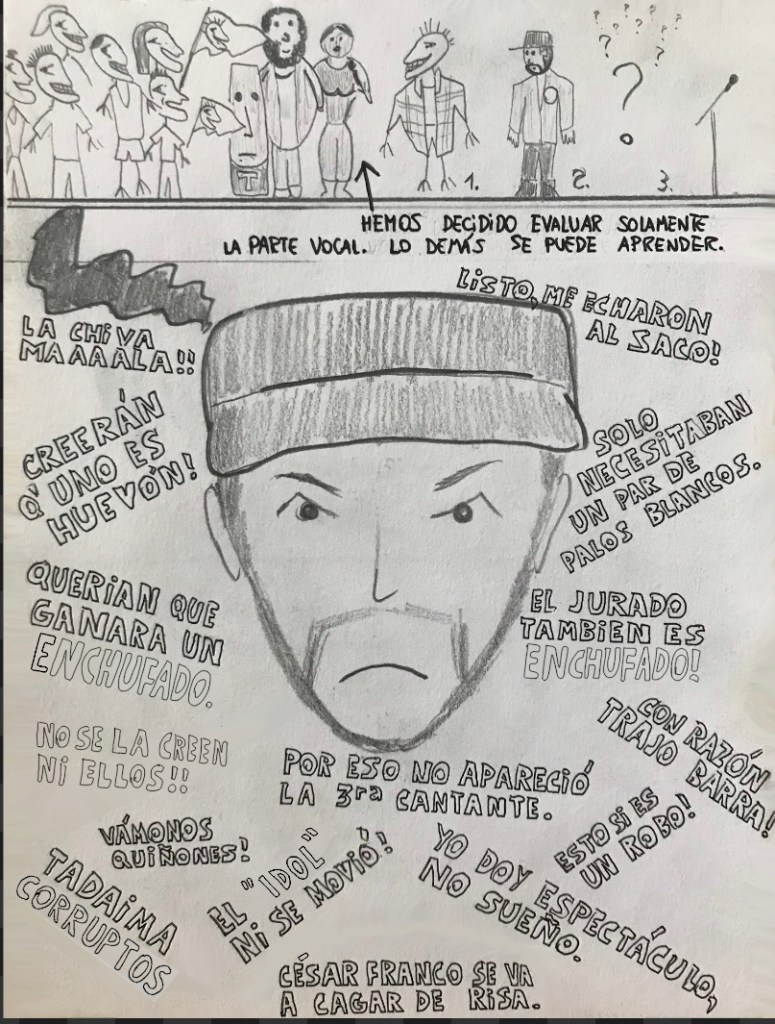 1.
2.
3.
T
HEMOS DECIDIDO EVALUAR SOLAMENTE
LA PARTE VOCAL. LO DEMÁS SE PUEDE APRENDER.
LA CHIVA
MAAAALA!!
LISTO, ME ECHARON
AL SACO!
CREERÁN
Q' UNO ES
HUEVÓN!
SOLO
NECESITABAN
UN PAR DE
PALOS BLANCOS.
QUERIAN QUE
GANARA UN
ENCHUFADO.
EL JURADO
TAMBIEN ES
ENCHUFADO!
NO SE LA CREEN
NI ELLOS!!
CON RAZÓN
TRAJO BARRA!
POR ESO NO APARECIÓ
LA 3ra CANTANTE.
VÁMONOS
QUIÑONES!
ESTO SI ES
UN ROBO!
EL "IDOL"
NI SE MOVIÓ!
YO DOY ESPECTÁCULO,
NO SUEÑO.
TADAIMA
CORRUPTOS
CÉSAR FRANCO SE VA
A CAGAR DE RISA.